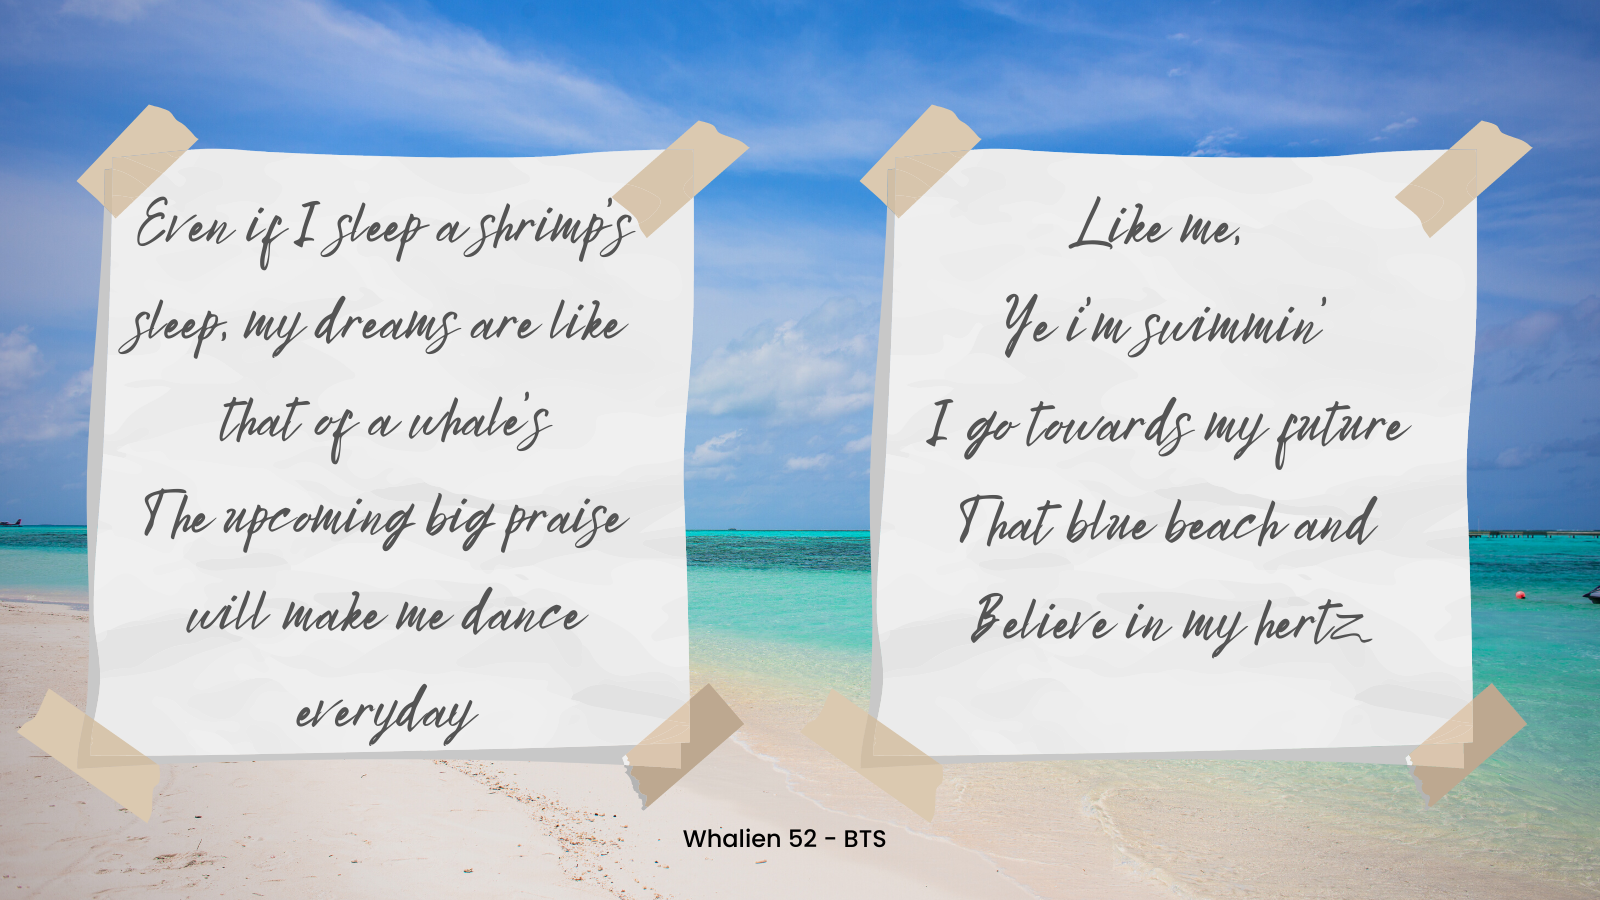 Even if I sleep a shrimp's
sleep, my dreams are like
that of a whale's
The upcoming big praise
will make me dance
everyday
Like me,
Ye i'm swimmin'
I go towards my future
That blue beach and
Believe in my hertz
Whalien 52 - BTS